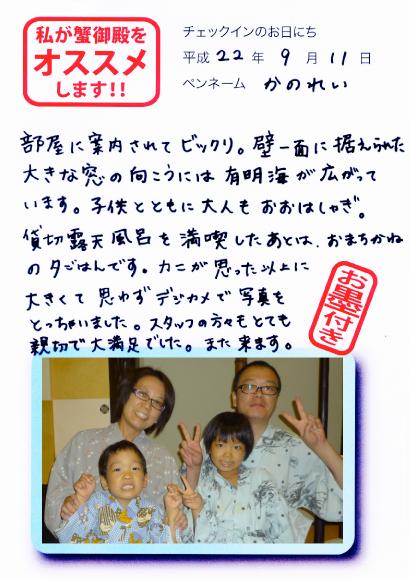 私が蟹御殿を
オススメ
します!!
チェックインのお日にち
平成 22 年 9 月 11 日
ペンネーム かのれい
部屋に案内されてビックリ。壁一面に据えられた
大きな窓の向こうには有明海が広がって
います。子供とともに大人もおおはしゃぎ。
貸切露天風呂を満喫したあとは、おまちかね
の夕ごはんです。カニが思った以上に
大きくて思わずデジカメで写真を
とっちゃいました。スタッフの方々もとても
親切で大満足でした。また来ます。
お墨付き